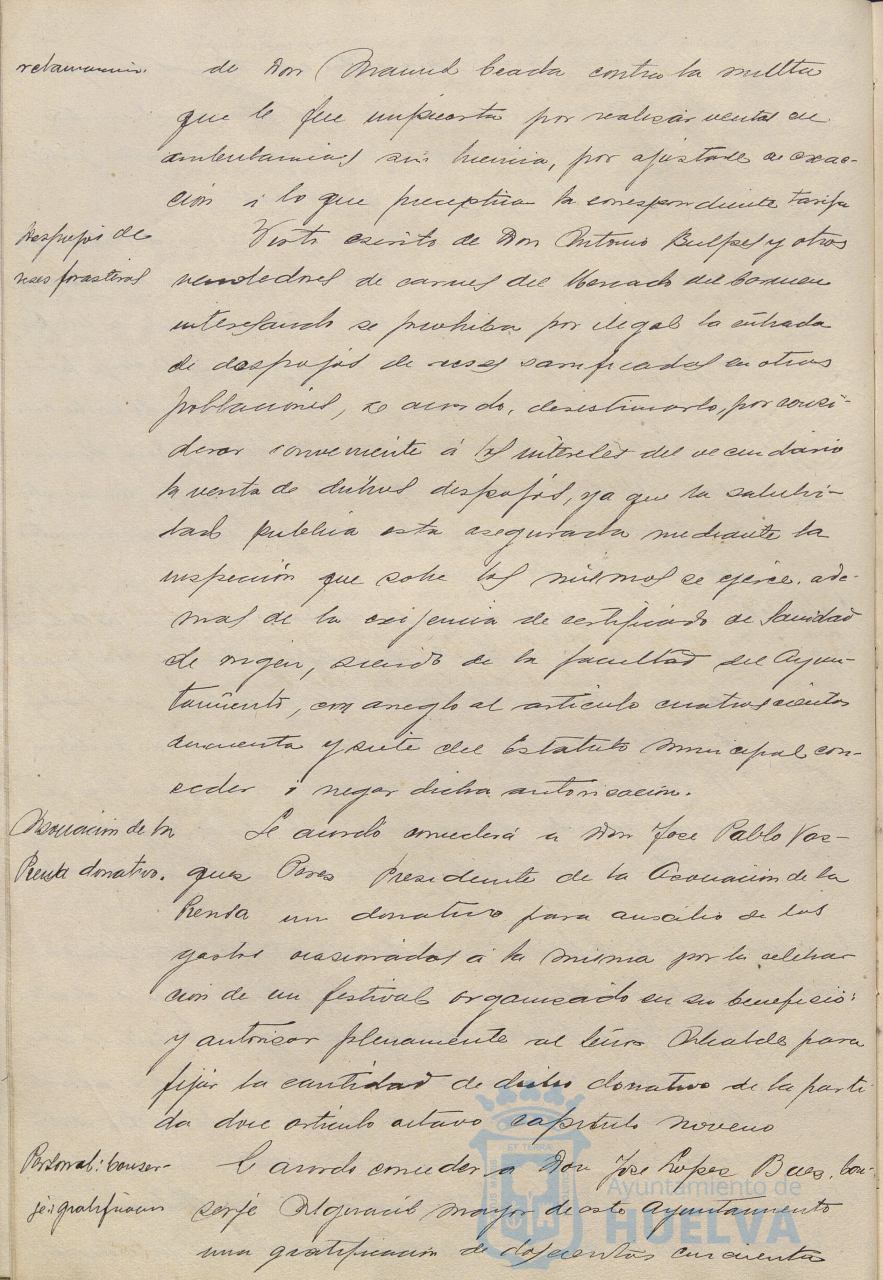 reclamación.
de Don Manuel Ceada contra la multa
que le fue impuesta por realizar ventas en
ambulancias sin licencia, por ajustarse de exac-
ción á lo que preceptua la correspondiente tarifa
Despojos de
reses forasteras
Visto escrito de Don Antonio Bulpes y otros
vendedores de carnes del Mercado del Carmen
interesando se prohiba por ilegal la entrada
de despojos de reses sacrificadas en otras
poblaciones, se acordo, desestimarlo, por consi-
derar conveniente á los intereses del vecindario
la venta de dichos despojos, ya que la salubri-
dad publica esta asegurada mediante la
inspección que sobre los mismos se ejerce, ade-
mas de la exigencia de certificado de Sanidad
de origen, siendo de la facultad del Ayun-
tamiento, con arreglo al articulo cuatrocientos
cincuenta y siete del Estatuto Municipal con-
ceder ó negar dicha autorización.
Asociación de la
Prensa donativo.
Se acordó concederá a Don Jose Pablo Vas-
ques Peres Presidente de la Asociación de la
Prensa un donativo para auxilio de los
gastos ocasionados á la misma por la celebra
ción de un festival organizado en su beneficio;
y autorisar plenamente al Señor Alcalde para
fijar la cantidad de dicho donativo de la parti
da doce articulo octavo capitulo noveno
Personal: Conser-
je: gratificacion
Se acordo conceder a Don Jose Lopes Baes, Con-
serje Alguacil mayor de este Ayuntamiento
una gratificación de doscientas cincuenta
Ayuntamiento de
HUELVA